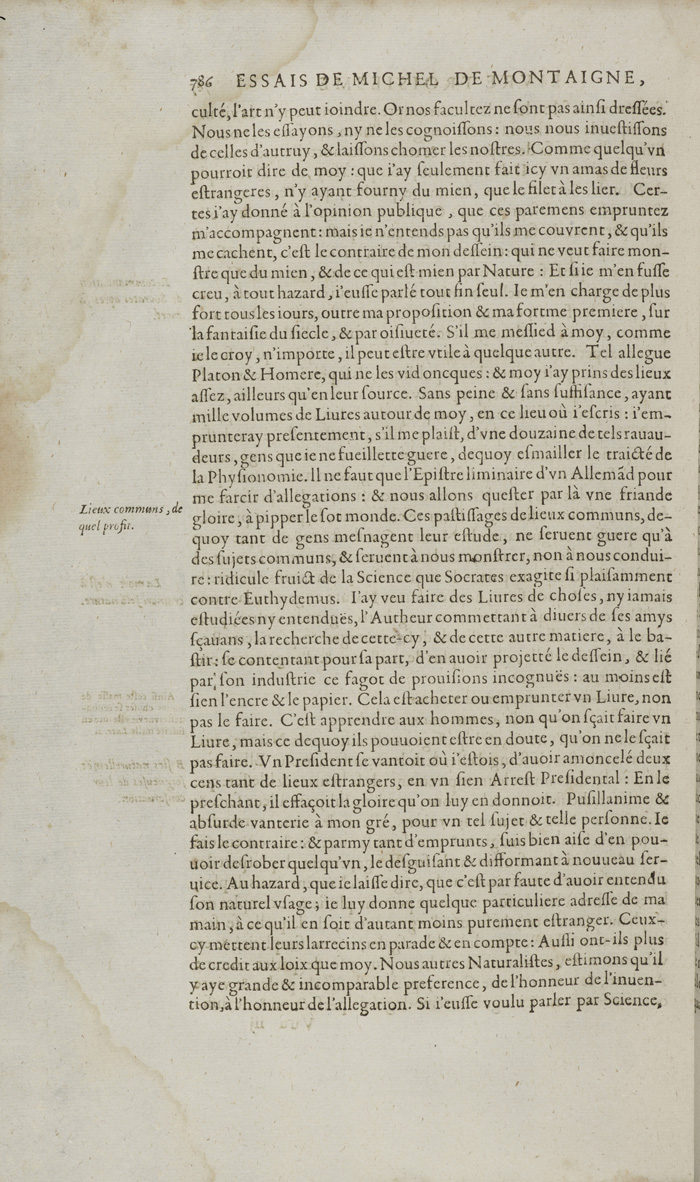 786 ESSAIS DE MICHEL DE MONTAIGNE,
culté, l'art n'y peut ioindre. Or nos facultez ne ſont pas ainſi dreſſées.
Nous ne les eſſayons, ny ne les cognoiſſons: nous nous inueſtiſſons
de celles d'autruy, & laiſſons chomer les noſtres. Comme quelqu'vn
pourroit dire de moy: que i'ay ſeulement fait icy vn amas de fleurs
eſtrangeres, n'y ayant fourny du mien, que le filet à les lier. Cer-
tes i'ay donné à l'opinion publique, que ces paremens empruntez
m'accompagnent: mais ie n'entends pas qu'ils me couvrent, & qu'ils
me cachent, c'eſt le contraire de mon deſſein: qui ne veut faire mon-
ſtre que du mien, & de ce qui eſt mien par Nature: Et ſi ie m'en fuſſe
creu, à tout hazard, i'euſſe parlé tout fin ſeul. Ie m'en charge de plus
fort tous les iours, outre ma propoſition & ma forme premiere, ſur
la fantaiſie du ſiecle, & par oiſiueté. S'il me meſſied à moy, comme
ie le croy, n'importe, il peut eſtre vtile à quelque autre. Tel allegue
Platon & Homere, qui ne les vid oncques: & moy i'ay prins des lieux
aſſez, ailleurs qu'en leur ſource. Sans peine & ſans ſuffiſance, ayant
mille volumes de Liures autour de moy, en ce lieu où i'eſcris: i'em-
prunteray preſentement, s'il me plaiſt, d'vne douzaine de tels rauau-
deurs, gens que ie ne fueillette guere, dequoy eſmailler le traicté de
la Phyſionomie. Il ne faut que l'Epiſtre liminaire d'vn Allemād pour
me farcir d'allegations: & nous allons queſter par là vne friande
Lieux communs, de
quel profit.
gloire, à pipper le ſot monde. Ces paſtiſſages de lieux communs, de-
quoy tant de gens meſnagent leur eſtude, ne ſeruent guere qu'à
des ſujets communs, & ſeruent à nous monſtrer, non à nous condui-
re: ridicule fruict de la Science que Socrates exagite ſi plaiſamment
contre Euthydemus. I'ay veu faire des Liures de choſes, ny iamais
eſtudiées ny entenduës, l'Autheur commettant à diuers de ſes amys
ſçauans, la recherche de cette-cy, & de cette autre matiere, à le ba-
ſtir: ſe contentant pour ſa part, d'en auoir projetté le deſſein, & lié
par ſon induſtrie ce fagot de prouiſions incognuës: au moins eſt
ſien l'encre & le papier. Cela eſt acheter ou emprunter vn Liure, non
pas le faire. C'eſt apprendre aux hommes, non qu'on ſçait faire vn
Liure, mais ce dequoy ils pouuoient eſtre en doute, qu'on ne le ſçait
pas faire. Vn Preſident ſe vantoit où i'eſtois, d'auoir amoncelé deux
cens tant de lieux eſtrangers, en vn ſien Arreſt Preſidental: En le
preſchant, il effaçoit la gloire qu'on luy en donnoit. Puſillanime &
abſurde vanterie à mon gré, pour vn tel ſujet & telle perſonne. Ie
fais le contraire: & parmy tant d'emprunts, ſuis bien aiſe d'en pou-
uoir deſrober quelqu'vn, le deſguiſant & difformant à nouueau ſer-
uice. Au hazard, que ie laiſſe dire, que c'eſt par faute d'auoir entendu
ſon naturel vſage; ie luy donne quelque particuliere adreſſe de ma
main, à ce qu'il en ſoit d'autant moins purement eſtranger. Ceux-
cy mettent leurs larrecins en parade & en compte: Auſſi ont-ils plus
de credit aux loix que moy. Nous autres Naturaliſtes, eſtimons qu'il
y aye grande & incomparable preference, de l'honneur de l'inuen-
tion, à l'honneur de l'allegation. Si i'euſſe voulu parler par Science,